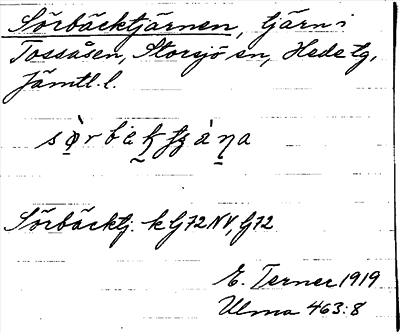 Sörbäcktjärnen, tjärn i
Tossåsen, Storsjö sn, Hede tg,
Jämtl. l.
Sörbäcktj. k G72NV, G72
E. Terner 1919
Ulma 463:8